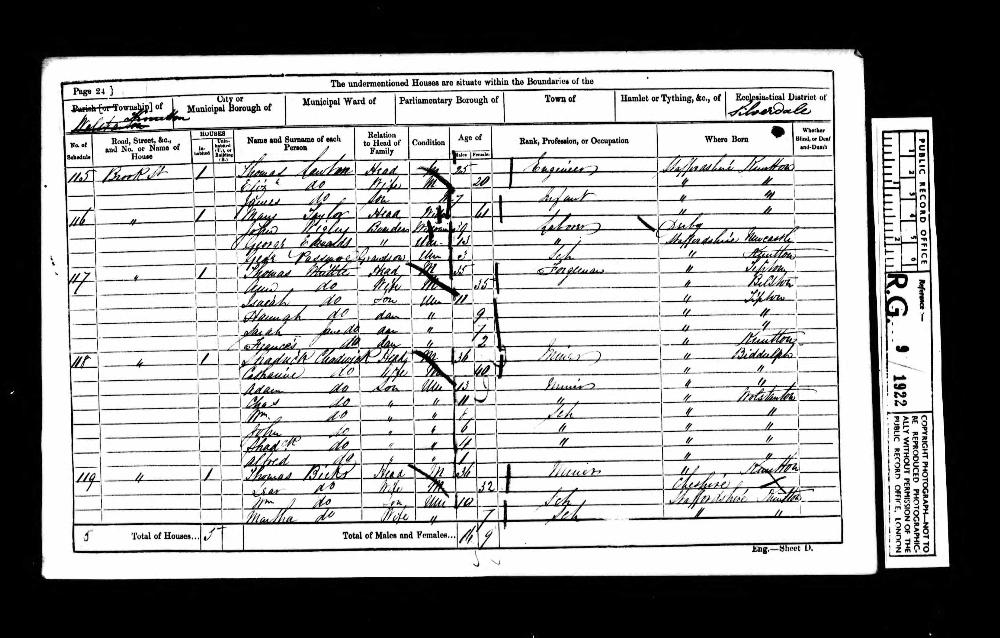 Page 24 }
The undermentioned Houses are situate within the Boundaries of the
Parish [or Township] of
City or Municipal Borough of
Municipal Ward of
Parliamentary Borough of
Town of
Hamlet or Tything, &c., of
Ecclesiastical District of
Silverdale
No. of Schedule
Road, Street, &c., and No. or Name of House
HOUSES
Name and Surname of each Person
Relation to Head of Family
Condition
Age of
Males Females
Rank, Profession, or Occupation
Where Born
Whether Blind, or Deaf-and-Dumb
115 Brook St 1 Thomas Head M 25 Engineer Staffordshire Knutton
do Wife M 20 " "
James do Son 7 Infant " "
116 " 1 Mary Taylor Head 61 " "
John Wigley 19 Laborer Derby
George " Un 13 " Staffordshire Newcastle
Grandson Un 3 Sch " Knutton
117 " 1 Thomas Head M 35 Forgeman " Tipton
Ann do Wife M 35 " Bilston
Isaiah do Son Un 11 " Tipton
Hannah do dau " 9 " "
Sarah Jane do dau " 7 " "
Frances do dau " 2 " Knutton
118 " 1 Shadrick Chadwick Head M 36 Miner " Biddulph
Catharine do Wife M 40 " "
Adam do Son Un 13 Miner " "
Chas do " " 11 " " Wolstanton
Wm do " " 8 Sch " "
John do " " 6 " " "
Shadk do " " 4 " " "
Alfred do " " 1 " "
119 " 1 Thomas Birks Head M 36 Miner " Knutton
do Wife M 32 Cheshire
Wm do Son Un 10 Sch Staffordshire Knutton
Martha do Wife " 7 Sch " "
5 Total of Houses... 5 Total of Males and Females... 16 9
Eng.—Sheet D.
PUBLIC RECORD OFFICE
1 2 3 4 5 6
Reference :—
R.G. 9 / 1922
COPYRIGHT PHOTOGRAPH—NOT TO BE REPRODUCED PHOTOGRAPHICALLY WITHOUT PERMISSION OF THE PUBLIC RECORD OFFICE, LONDON